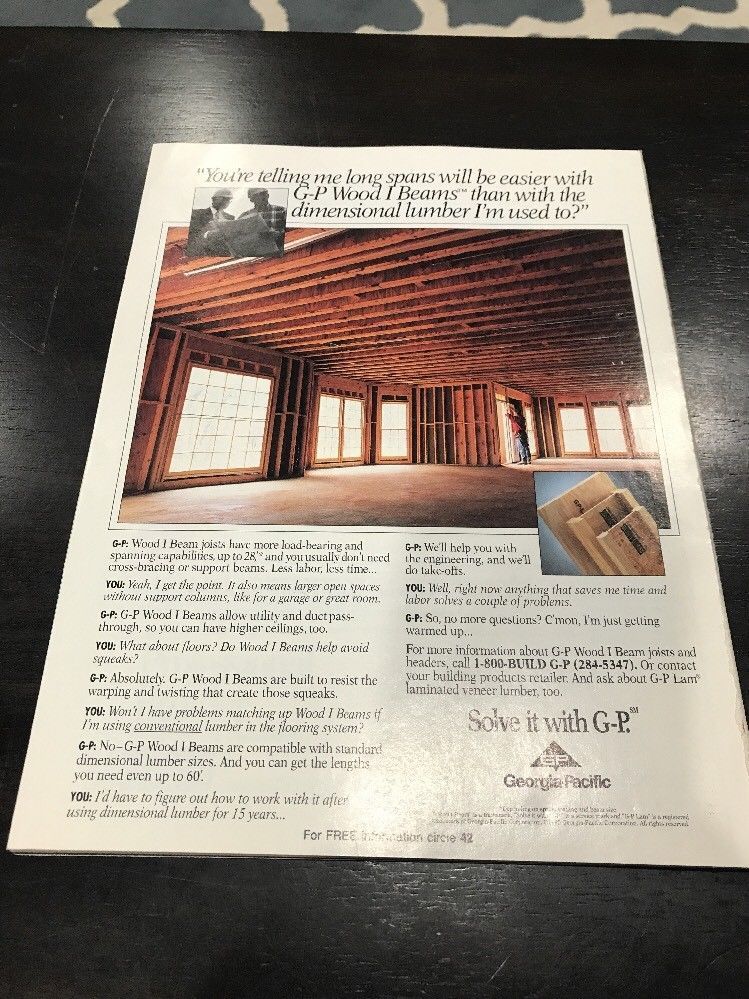 "You're telling me long spans will be easier with
G-P Wood I Beams™ than with the
dimensional lumber I'm used to?"
G-P: Wood I Beam joists have more load-bearing and
spanning capabilities, up to 28,'* and you usually don't need
cross-bracing or support beams. Less labor, less time...
YOU: Yeah, I get the point. It also means larger open spaces
without support columns, like for a garage or great room.
G-P: G-P Wood I Beams allow utility and duct pass-
through, so you can have higher ceilings, too.
YOU: What about floors? Do Wood I Beams help avoid
squeaks?
G-P: Absolutely. G-P Wood I Beams are built to resist the
warping and twisting that create those squeaks.
YOU: Won't I have problems matching up Wood I Beams if
I'm using conventional lumber in the flooring system?
G-P: No–G-P Wood I Beams are compatible with standard
dimensional lumber sizes. And you can get the lengths
you need even up to 60'.
YOU: I'd have to figure out how to work with it after
using dimensional lumber for 15 years...
G-P: We'll help you with
the engineering, and we'll
do take-offs.
YOU: Well, right now anything that saves me time and
labor solves a couple of problems.
G-P: So, no more questions? C'mon, I'm just getting
warmed up...
For more information about G-P Wood I Beam joists and
headers, call 1-800-BUILD G-P (284-5347). Or contact
your building products retailer. And ask about G-P Lam®
laminated veneer lumber, too.
Solve it with G-P.℠
GP
Georgia-Pacific
*Depending on spacing, loading and beam size.
is a trademark, "Solve it with is a service mark and "G-P Lam" is a registered
trademark of Georgia-Pacific Corporation. Georgia-Pacific Corporation. All rights reserved.
For FREE information circle 42